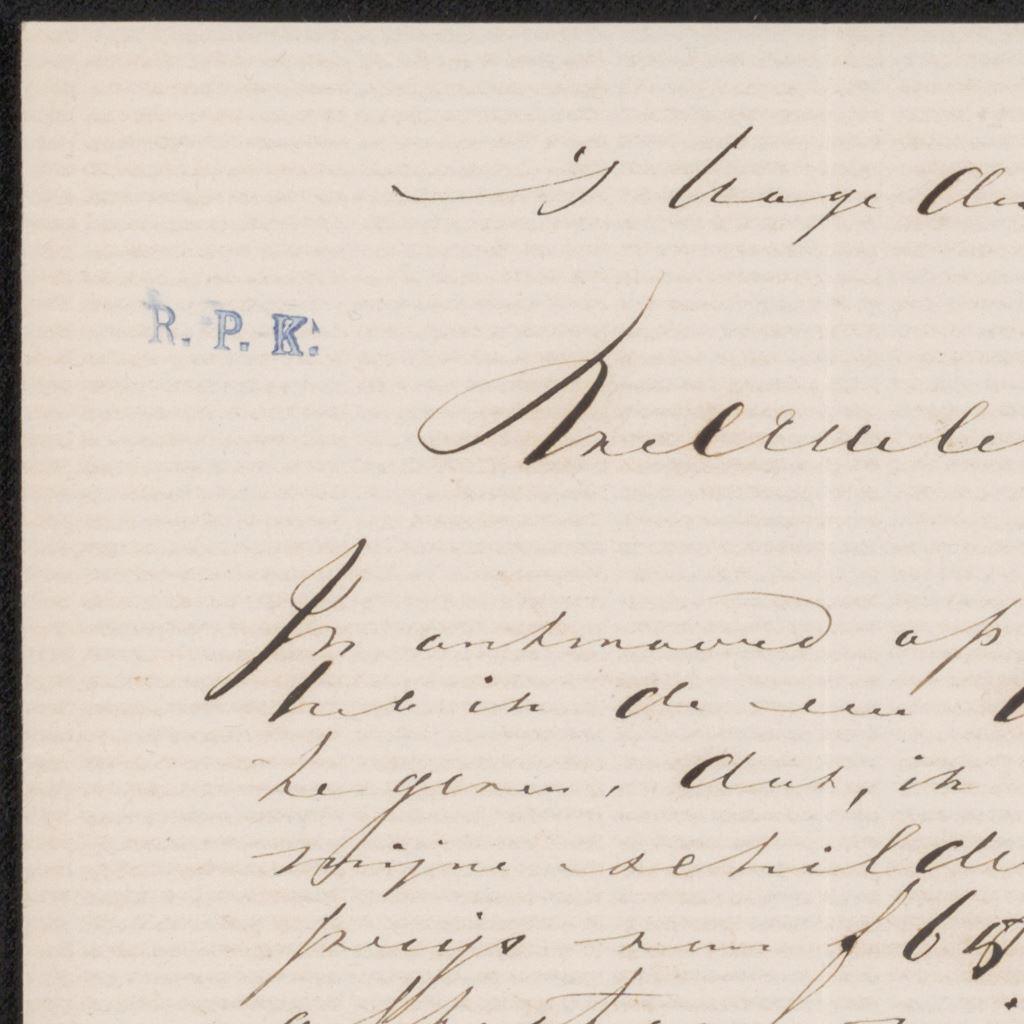 's Hage de
R. P. K.
In antwoord op
heb ik de eer
te geven, dat, ik
mijne schilde
prijs van f 6